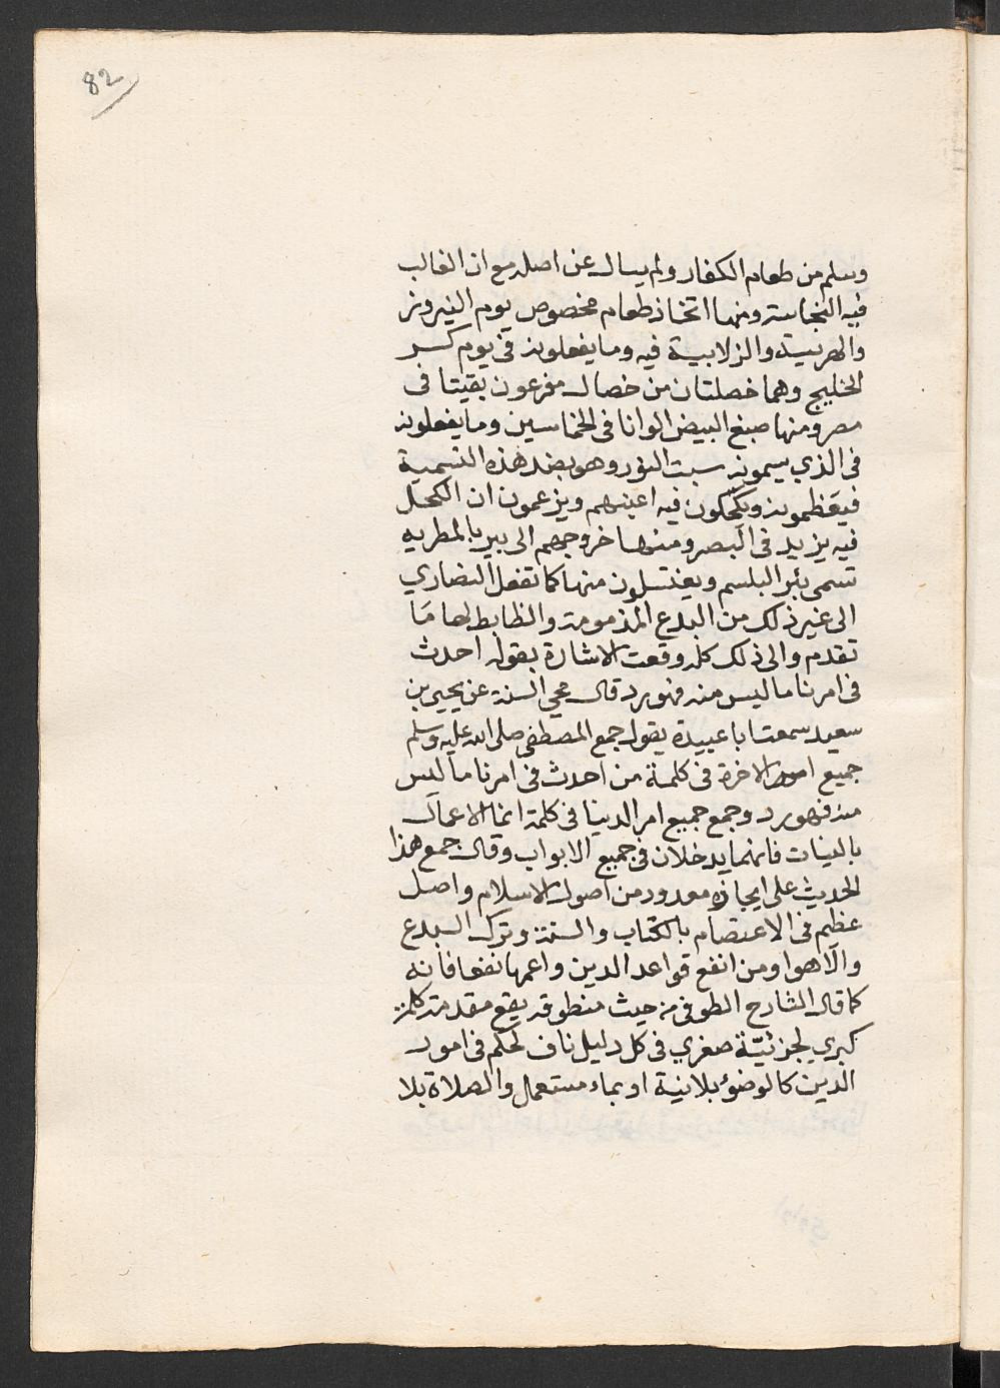 82
وسلم من طعام الكفار ولم يسال عن اصله مع ان الغالب
فيه النجاسة ومنها اتخاذ طعام مخصوص يوم النيروز
والهريسة والزلابية فيه وما يفعلونه فى يوم كسر
الخليج وهما خصلتان من خصال فرعون بقيتا فى
مصر ومنها صبغ البيض الوانا فى الخماسين وما يفعلونه
فى الذي يسمونه سبت النور وهو بضد هذه التسمية
فيعظمونه ويكتحلون فيه اعينهم ويزعمون ان الكحل
فيه يزيد فى البصر ومنها خروجهم الى بير بالمطريه
تسمى بئر البلسم ويغتسلون منها كما تفعل النصاري
الى غير ذلك من البدع المذمومة والظابط لها ما
تقدم والى ذلك كله وقعت الاشارة بقوله احدث
فى امرنا ما ليس منه فهو رد قال محي السنة عن يحيى بن
سعيد سمعت ابا عبيدة يقول جمع المصطفى صلى الله عليه وسلم
جميع امور الاخرة فى كلمة من احدث فى امرنا ما ليس
منه فهو رد وجمع جميع امر الدينا فى كلمة انما الاعمال
بالنيات فانهما يدخلان فى جميع الابواب وقال جمع هذا
الحديث على ايجازه معدود من اصول الاسلام واصل
عظيم فى الاعتصام بالكتاب والسنة وترك البدع
والاهوا ومن انفع قواعد الدين واعمها نفعا فانه
كما قال الشارح الطوفى من حيث منطوقه يقع مقدمة كلية
كبري لجزئيّة صغري فى كل دليل ناف لحكم فى امور
الدين كالوضوء بلا نية او بماء مستعمل والصلاة بلا